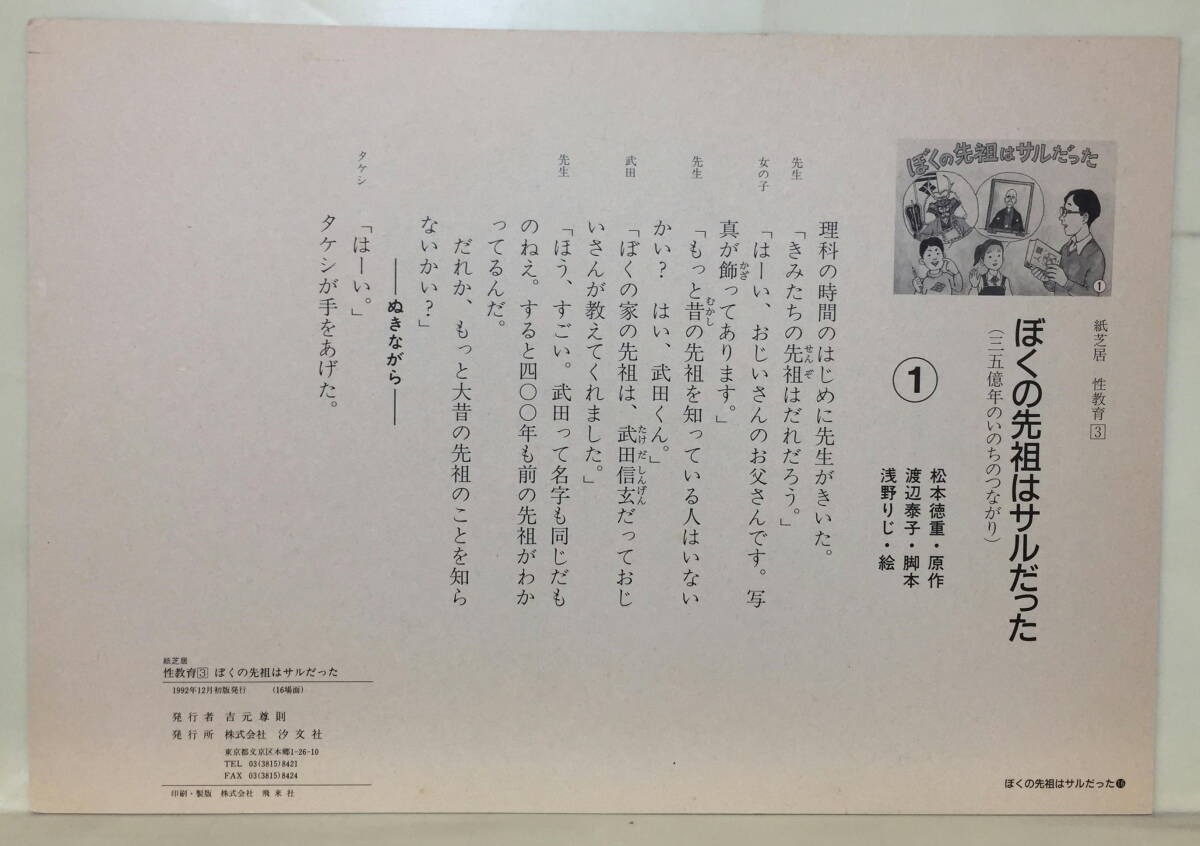 ぼくの先祖はサルだった
①
紙芝居 性教育3
ぼくの先祖はサルだった
（三五億年のいのちのつながり）
松本徳重・原作
渡辺泰子・脚本
浅野りじ・絵
①
理科の時間のはじめに先生がきいた。
先生 「きみたちの先祖はだれだろう。」
せんぞ
女の子 「はーい、おじいさんのお父さんです。写
真が飾ってあります。」
かざ
先生 「もっと昔の先祖を知っている人はいない
むかし
かい？ はい、武田くん。」
武田 「ぼくの家の先祖は、武田信玄だっておじ
たけだしんげん
いさんが教えてくれました。」
先生 「ほう、すごい。武田って名字も同じだも
のねえ。すると四〇〇年も前の先祖がわか
ってるんだ。
だれか、もっと大昔の先祖のことを知ら
ないかい？」
――ぬきながら――
タケシ 「はーい。」
タケシが手をあげた。
紙芝居
性教育3 ぼくの先祖はサルだった
1992年12月初版発行 （16場面）
発行者 吉元尊則
発行所 株式会社 汐文社
東京都文京区本郷1-26-10
TEL 03(3815)8421
FAX 03(3815)8424
印刷・製版 株式会社 飛来社
ぼくの先祖はサルだった⓰